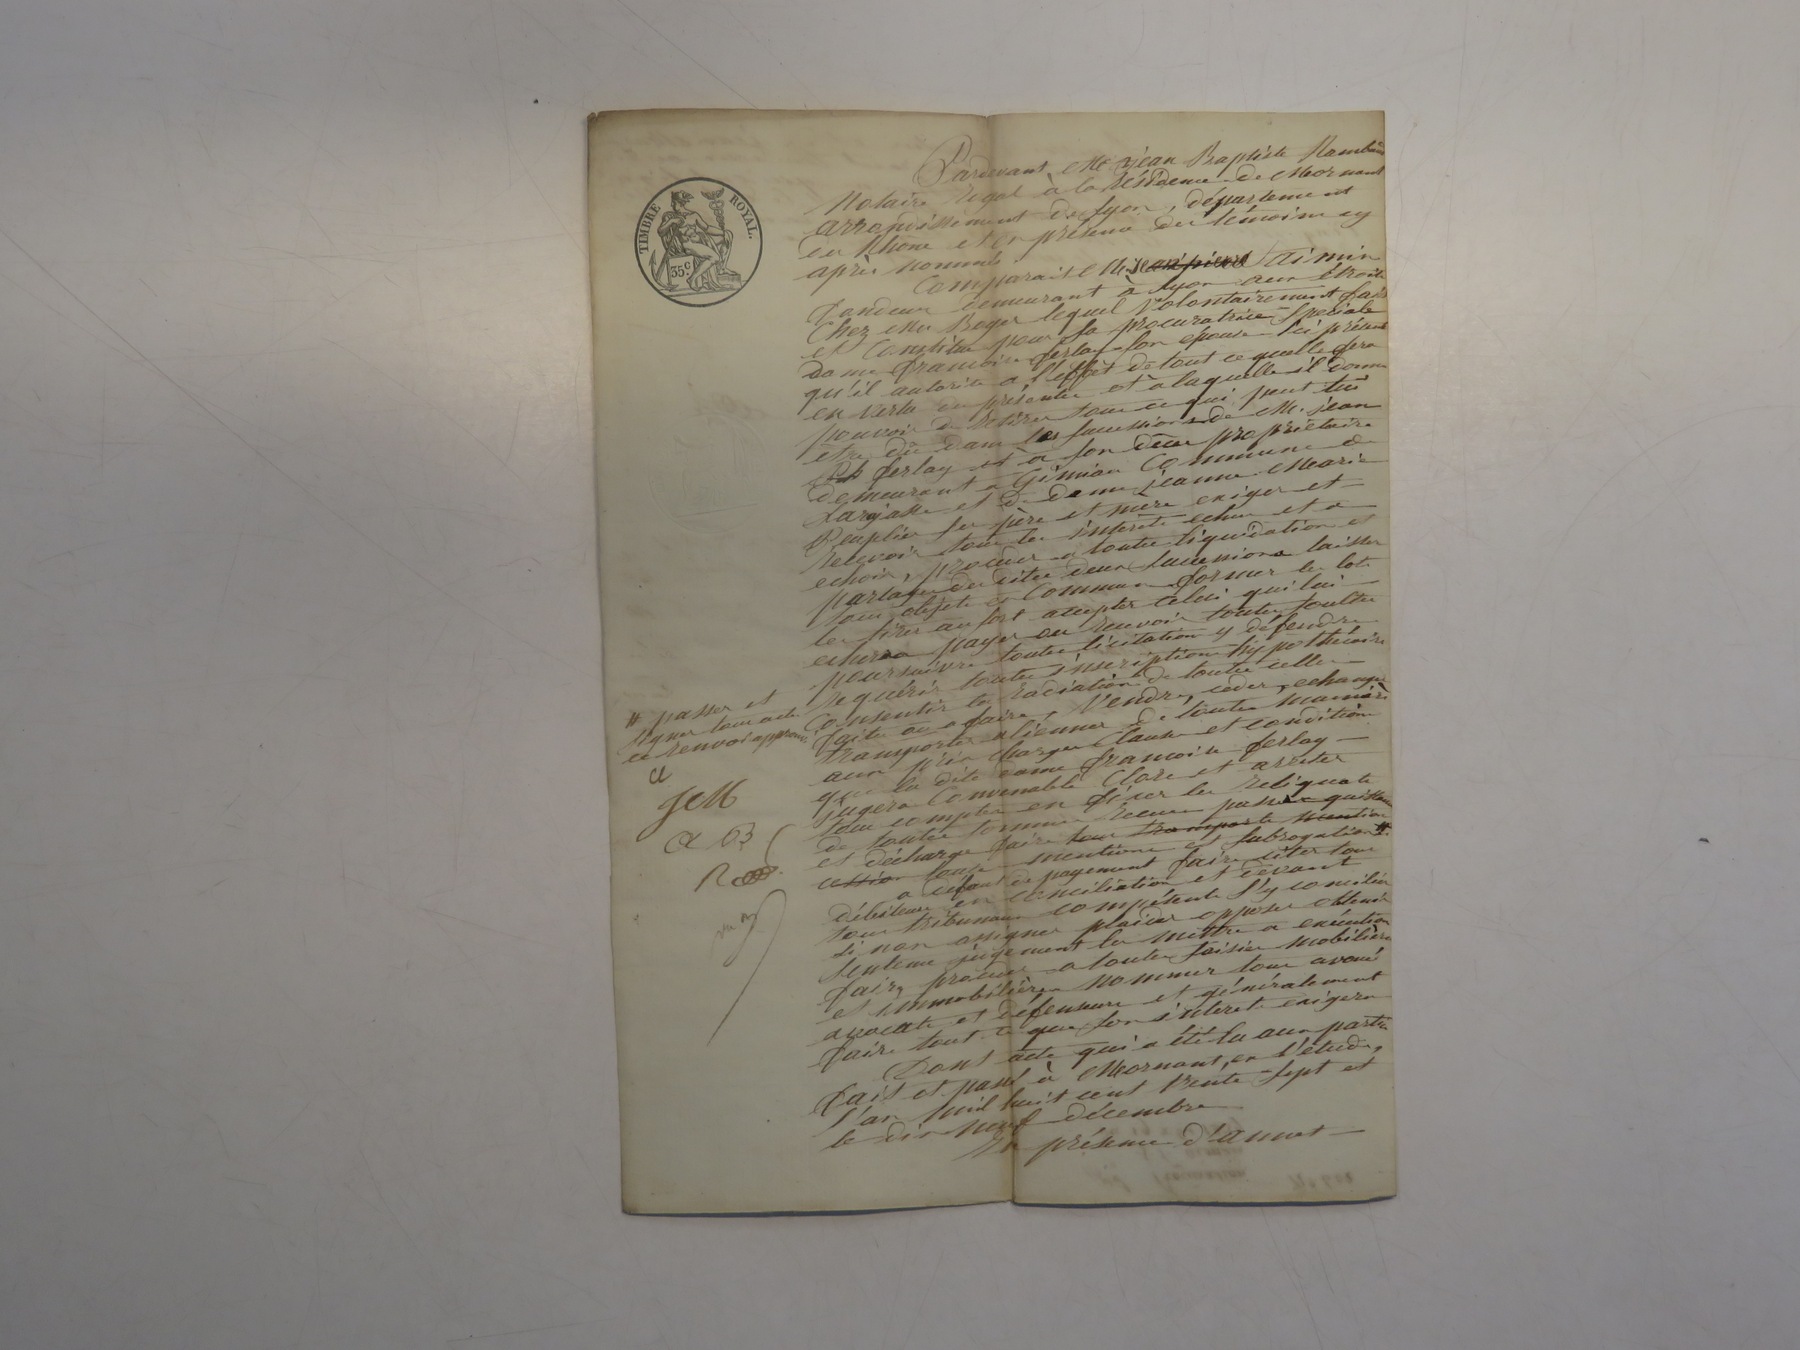 TIMBRE ROYAL.
35c
Pardevant Me jean Baptiste Rambaud
Notaire Royal à la Résidence de Mornant
arrondissement de Lyon, département
du Rhône et en présence des témoins cy
après nommés
Comparait M. jean pierre
demeurant à Lyon aux
Chez Mr Boyer lequel volontairement fait
et constitue pour sa procuratrice spéciale
Dame françoise ferlay son épouse ici présente
qu'il autorise à l'effet de tout ce quelle fera
en vertu des présentes et à laquelle il donne
pouvoir de retirer tout ce qui peut lui
être dû dans les successions de M. jean
ferlay et à son décès propriétaire
demeurant à Gimian Commune de
Larajasse et de dame jeanne Marie
ses père et mère exiger et
recevoir tous les intérêts echus et a
echoir, proceder a toutes liquidation et
partages des dites deux successions laisser
tous objets en Commun former les lots
les tirer au sort accepter celui qui lui
echerra payer ou recevoir toutes soultes
poursuivre toutes licitation y défendre
requérir toutes inscriptions hypothécaire
Consentir la radiation de toutes celles
faites ou a faire, Vendre, ceder, echanger
transporter aliénner de toutes manière
aux prix charges clauses et condition
que la dite dame francoise ferlay
jugera Convenable Clore et arrêter
tous comptes en fixer les reliquats
de toutes sommes recues passer quittance
et décharge faire tous transports mention
cession toutes mentions et subrogations #
a défaut de payement faire citer tous
débiteurs en conciliation et devant
tous tribunaux compétents s'y concilier
si non assigner plaider opposer obtenir
sentence jugement les mettre a exécution
faire proceder a toutes saisies mobilière
et immobilières nommer tous avoués
avocats et défenseurs et généralement
faire tout ce que son intérêt exigera
Dont acte qui a été lu aux parties
fait et passé à Mornant, en l'étude,
l'an mil huit cent trente sept et
le dix neuf décembre
En présence d'annet
# passer et
signer tous actes
ce renvoi approuvé
JeM